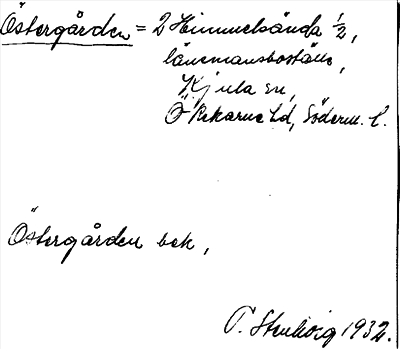 Östergården = 2 Himmelsända ½,
länsmansboställe,
Kjula sn,
Ö Rekarne hd, Söderm. l.
Östergården bek,
T. Stenhvig 1932.